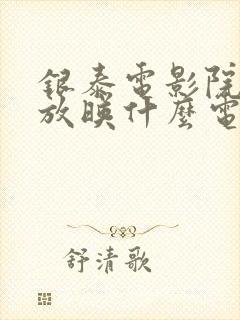 銀泰電影院
放映什麼電
舒清歌